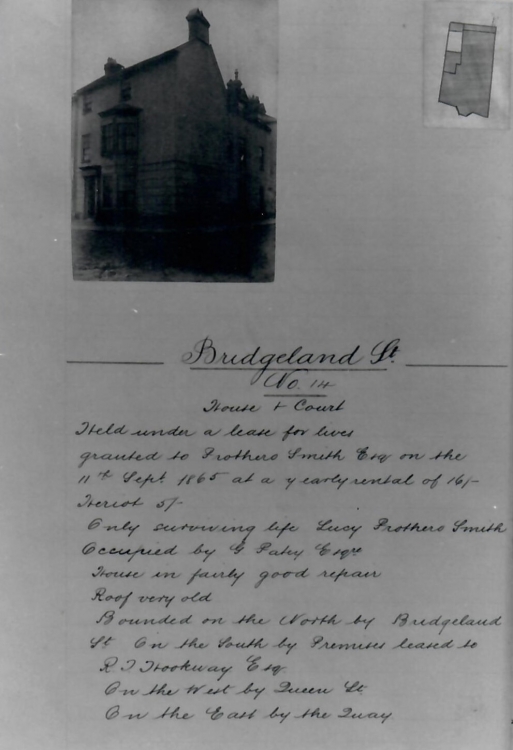 Bridgeland St.
No. 14
House & Court
Held under a lease for lives
granted to Prothero Smith Esq on the
11th Sept. 1865 at a yearly rental of 16/-
Heriot 5/-
Only surviving life Lucy Prothero Smith
Occupied by G Esqre
House in fairly good repair
Roof very old
Bounded on the North by Bridgeland
St. On the South by Premises leased to
R T Hookway Esq.
On the West by Queen St.
On the East by the Quay.